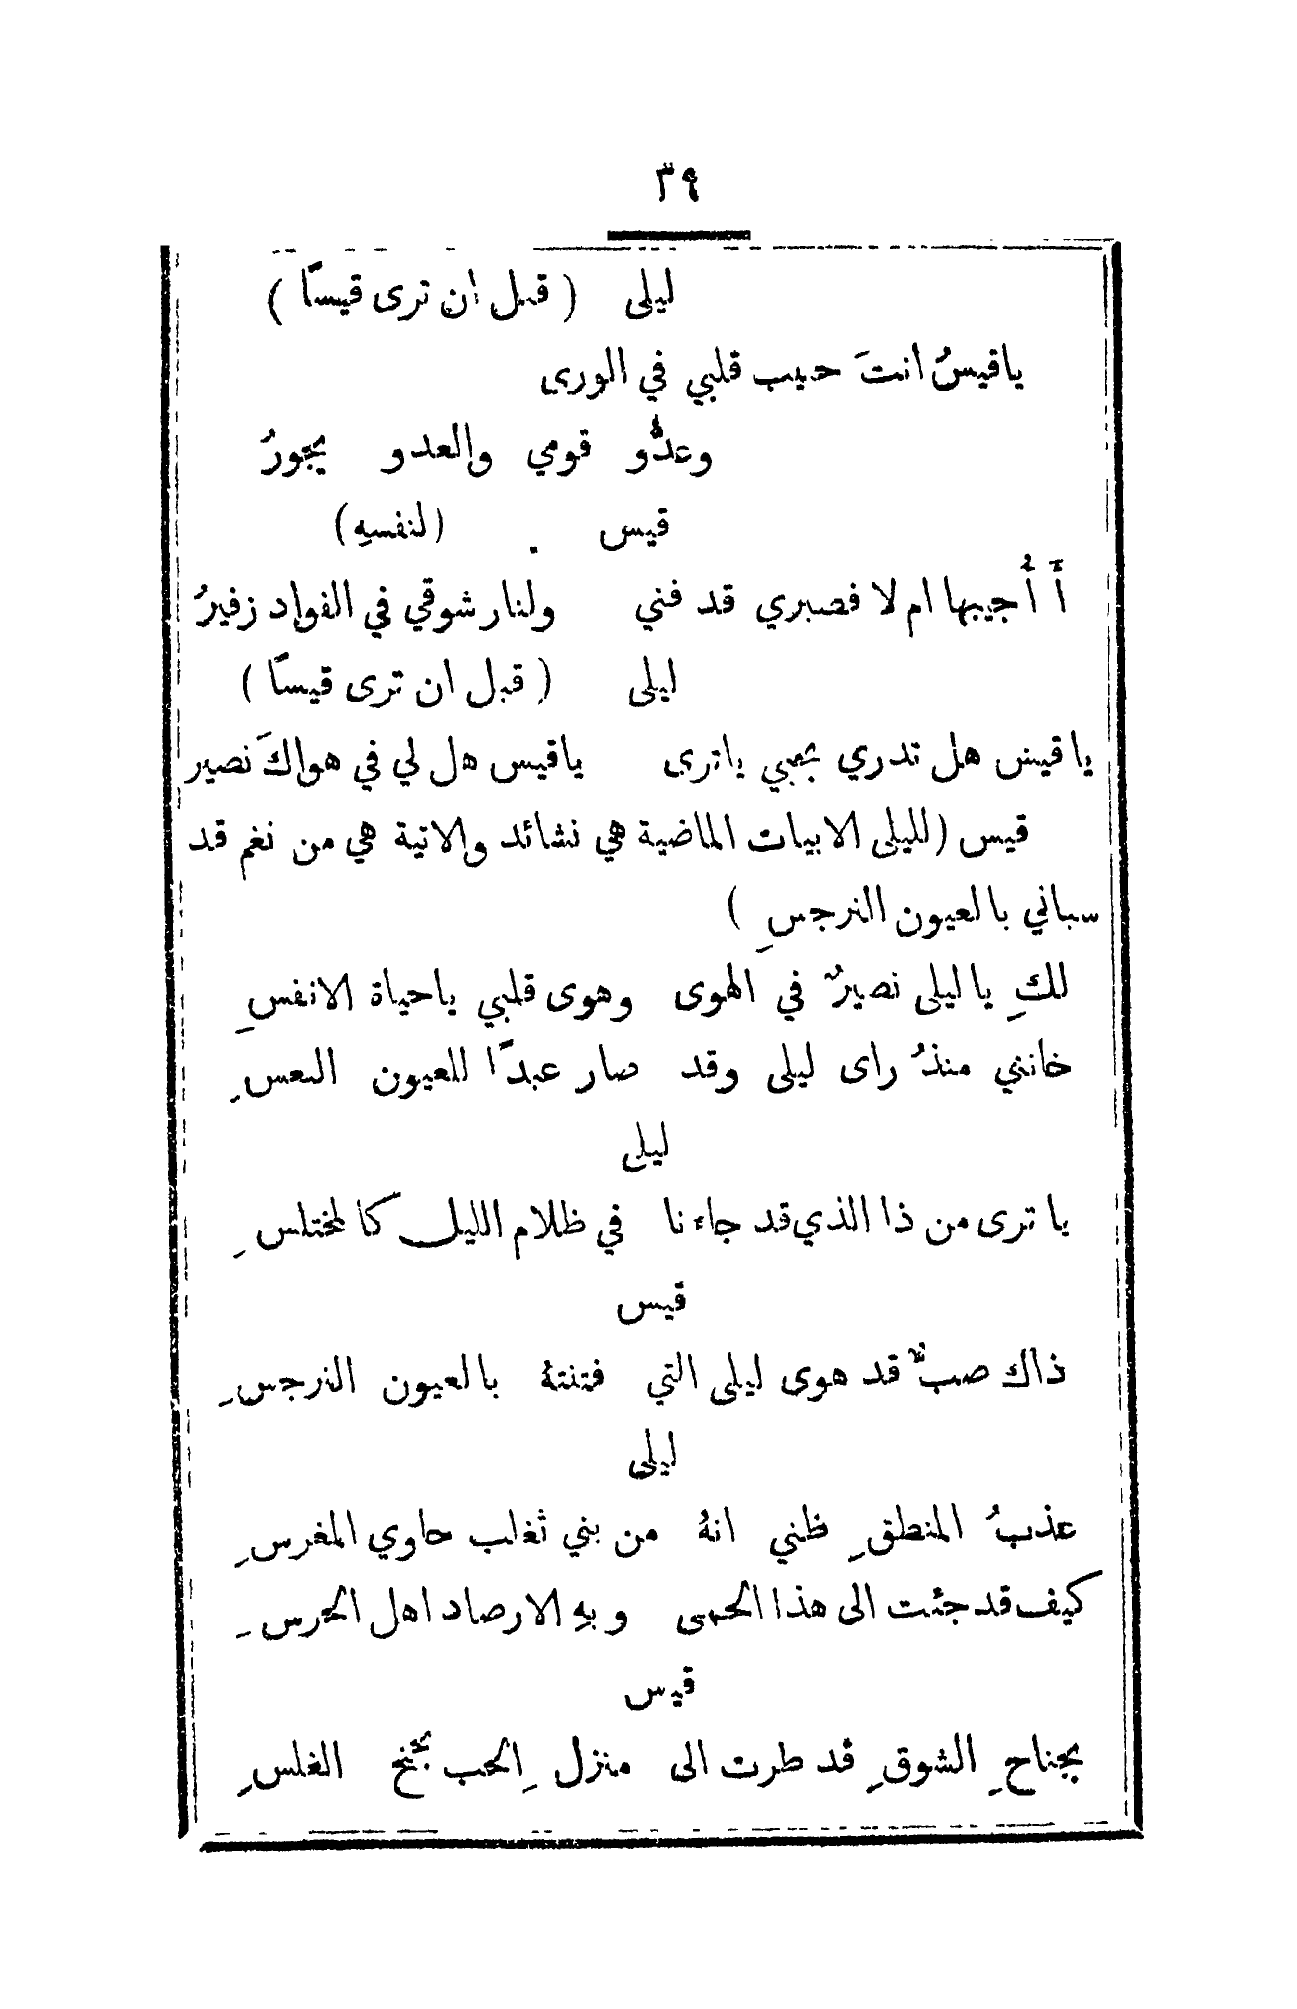 ٣٩
ليلى ( قبل ان ترى قيسًا )
ياقيسُ انتَ حبيب قلبي في الورى
وعدُّو قومي والعدو يجورُ
قيس (لنفسهِ)
أَ أُجيبها ام لا فصبري قد فني ولنار شوقي في الفواد زفيرُ
ليلى ( قبل ان ترى قيسًا )
يا قيس هل تدري بحبي ياترى ياقيس هل لي في هواكَ نصير
قيس (لليلى الابيات الماضية هي نشائد والاتية هي من نغم قد
سباني بالعيون النرجسِ )
لكِ يا ليلى نصيرٌ في الهوى وهوى قلبي ياحياة الانفسِ
خانني منذُ راى ليلى وقد صار عبدًا للعيون النعسِ
ليلى
يا ترى من ذا الذي قد جاءنا في ظلام الليل كالمختلسِ
قيس
ذاك صبٌّ قد هوى ليلى التي فتنتهُ بالعيون النرجسِ
ليلى
عذبُ المنطقِ ظني انهُ من بني ثغلب حاوي المغرسِ
كيف قد جئت الى هذا الحمى وبهِ الارصاد اهل الحرسِ
قيس
بجناحِ الشوقِ قد طرت الى منزل الحبِ بجنح الغلسِ